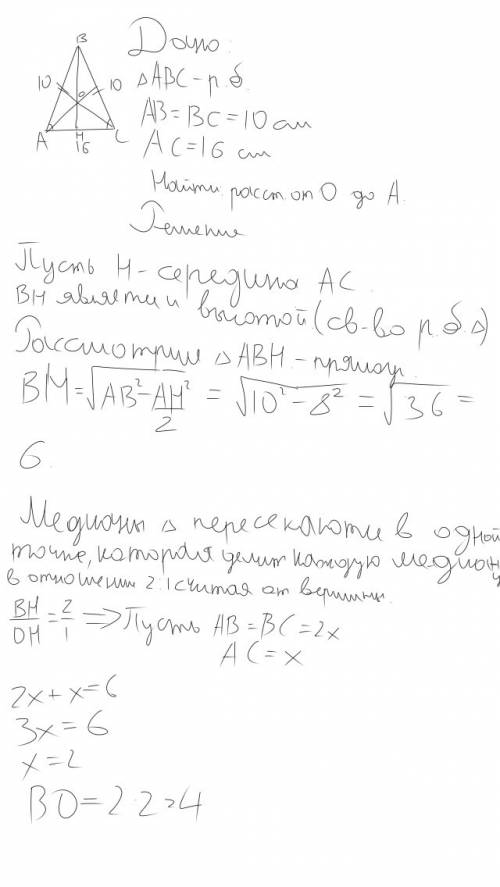 B
10
10
O
A
C
H
16
Дано:
△ABC - р.б.
AB = BC = 10 см
AC = 16 см
Найти: расст. от O до A.
Решение
Пусть H - середина AC.
BH является и высотой (св-во р.б.△)
Рассмотрим △ABH - прямоуг.
BM = √AB² - AH²/2 = √10² - 8² = √36 =
6.
Медианы △ пересекаются в одной
точке, которая делит каждую медиану
в отношении 2:1 считая от вершины.
BH/OH = 2/1 ⟹ Пусть AB = BC = 2x
AC = x
2x + x = 6
3x = 6
x = 2
BO = 2·2 = 4